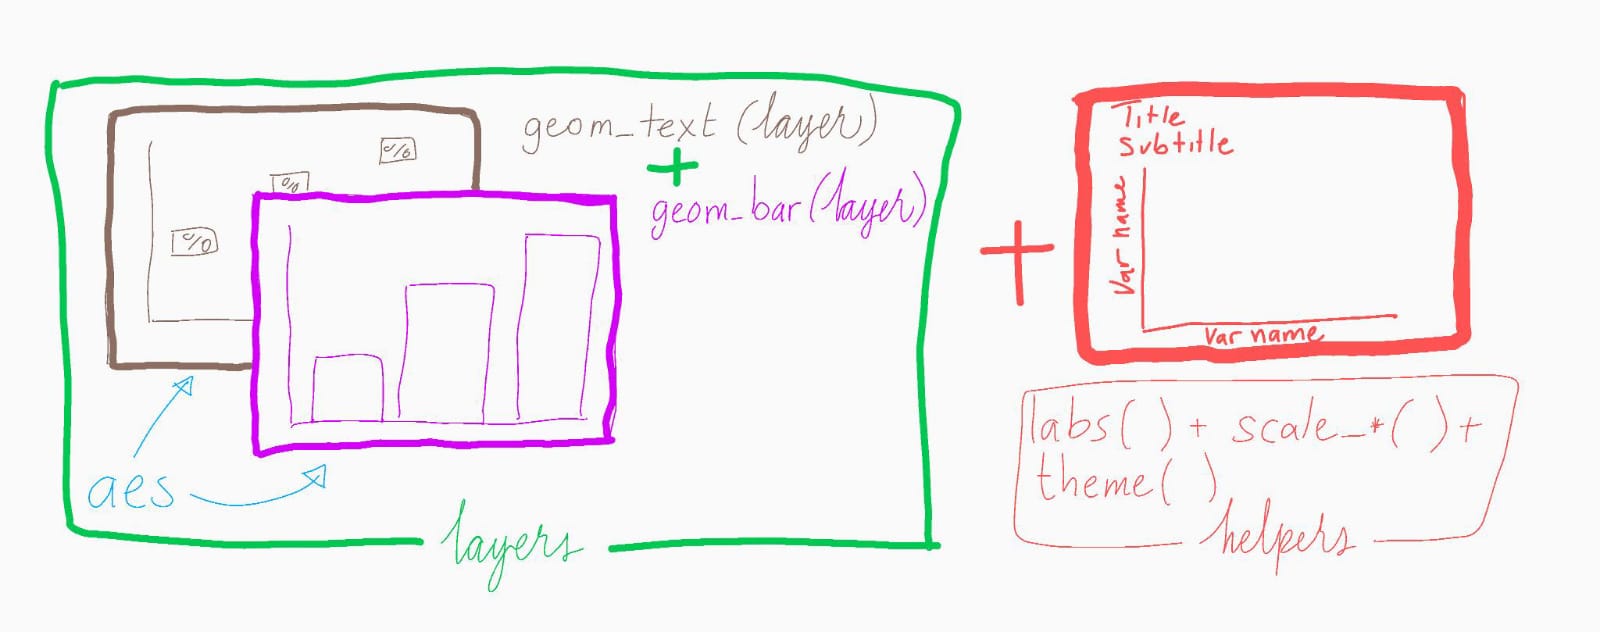 geom_text (layer)
+
geom_bar (layer)
%
%
%
aes
layers
+
Title
Subtitle
Var name
Var name
labs( ) + scale_*( ) +
theme( )
helpers